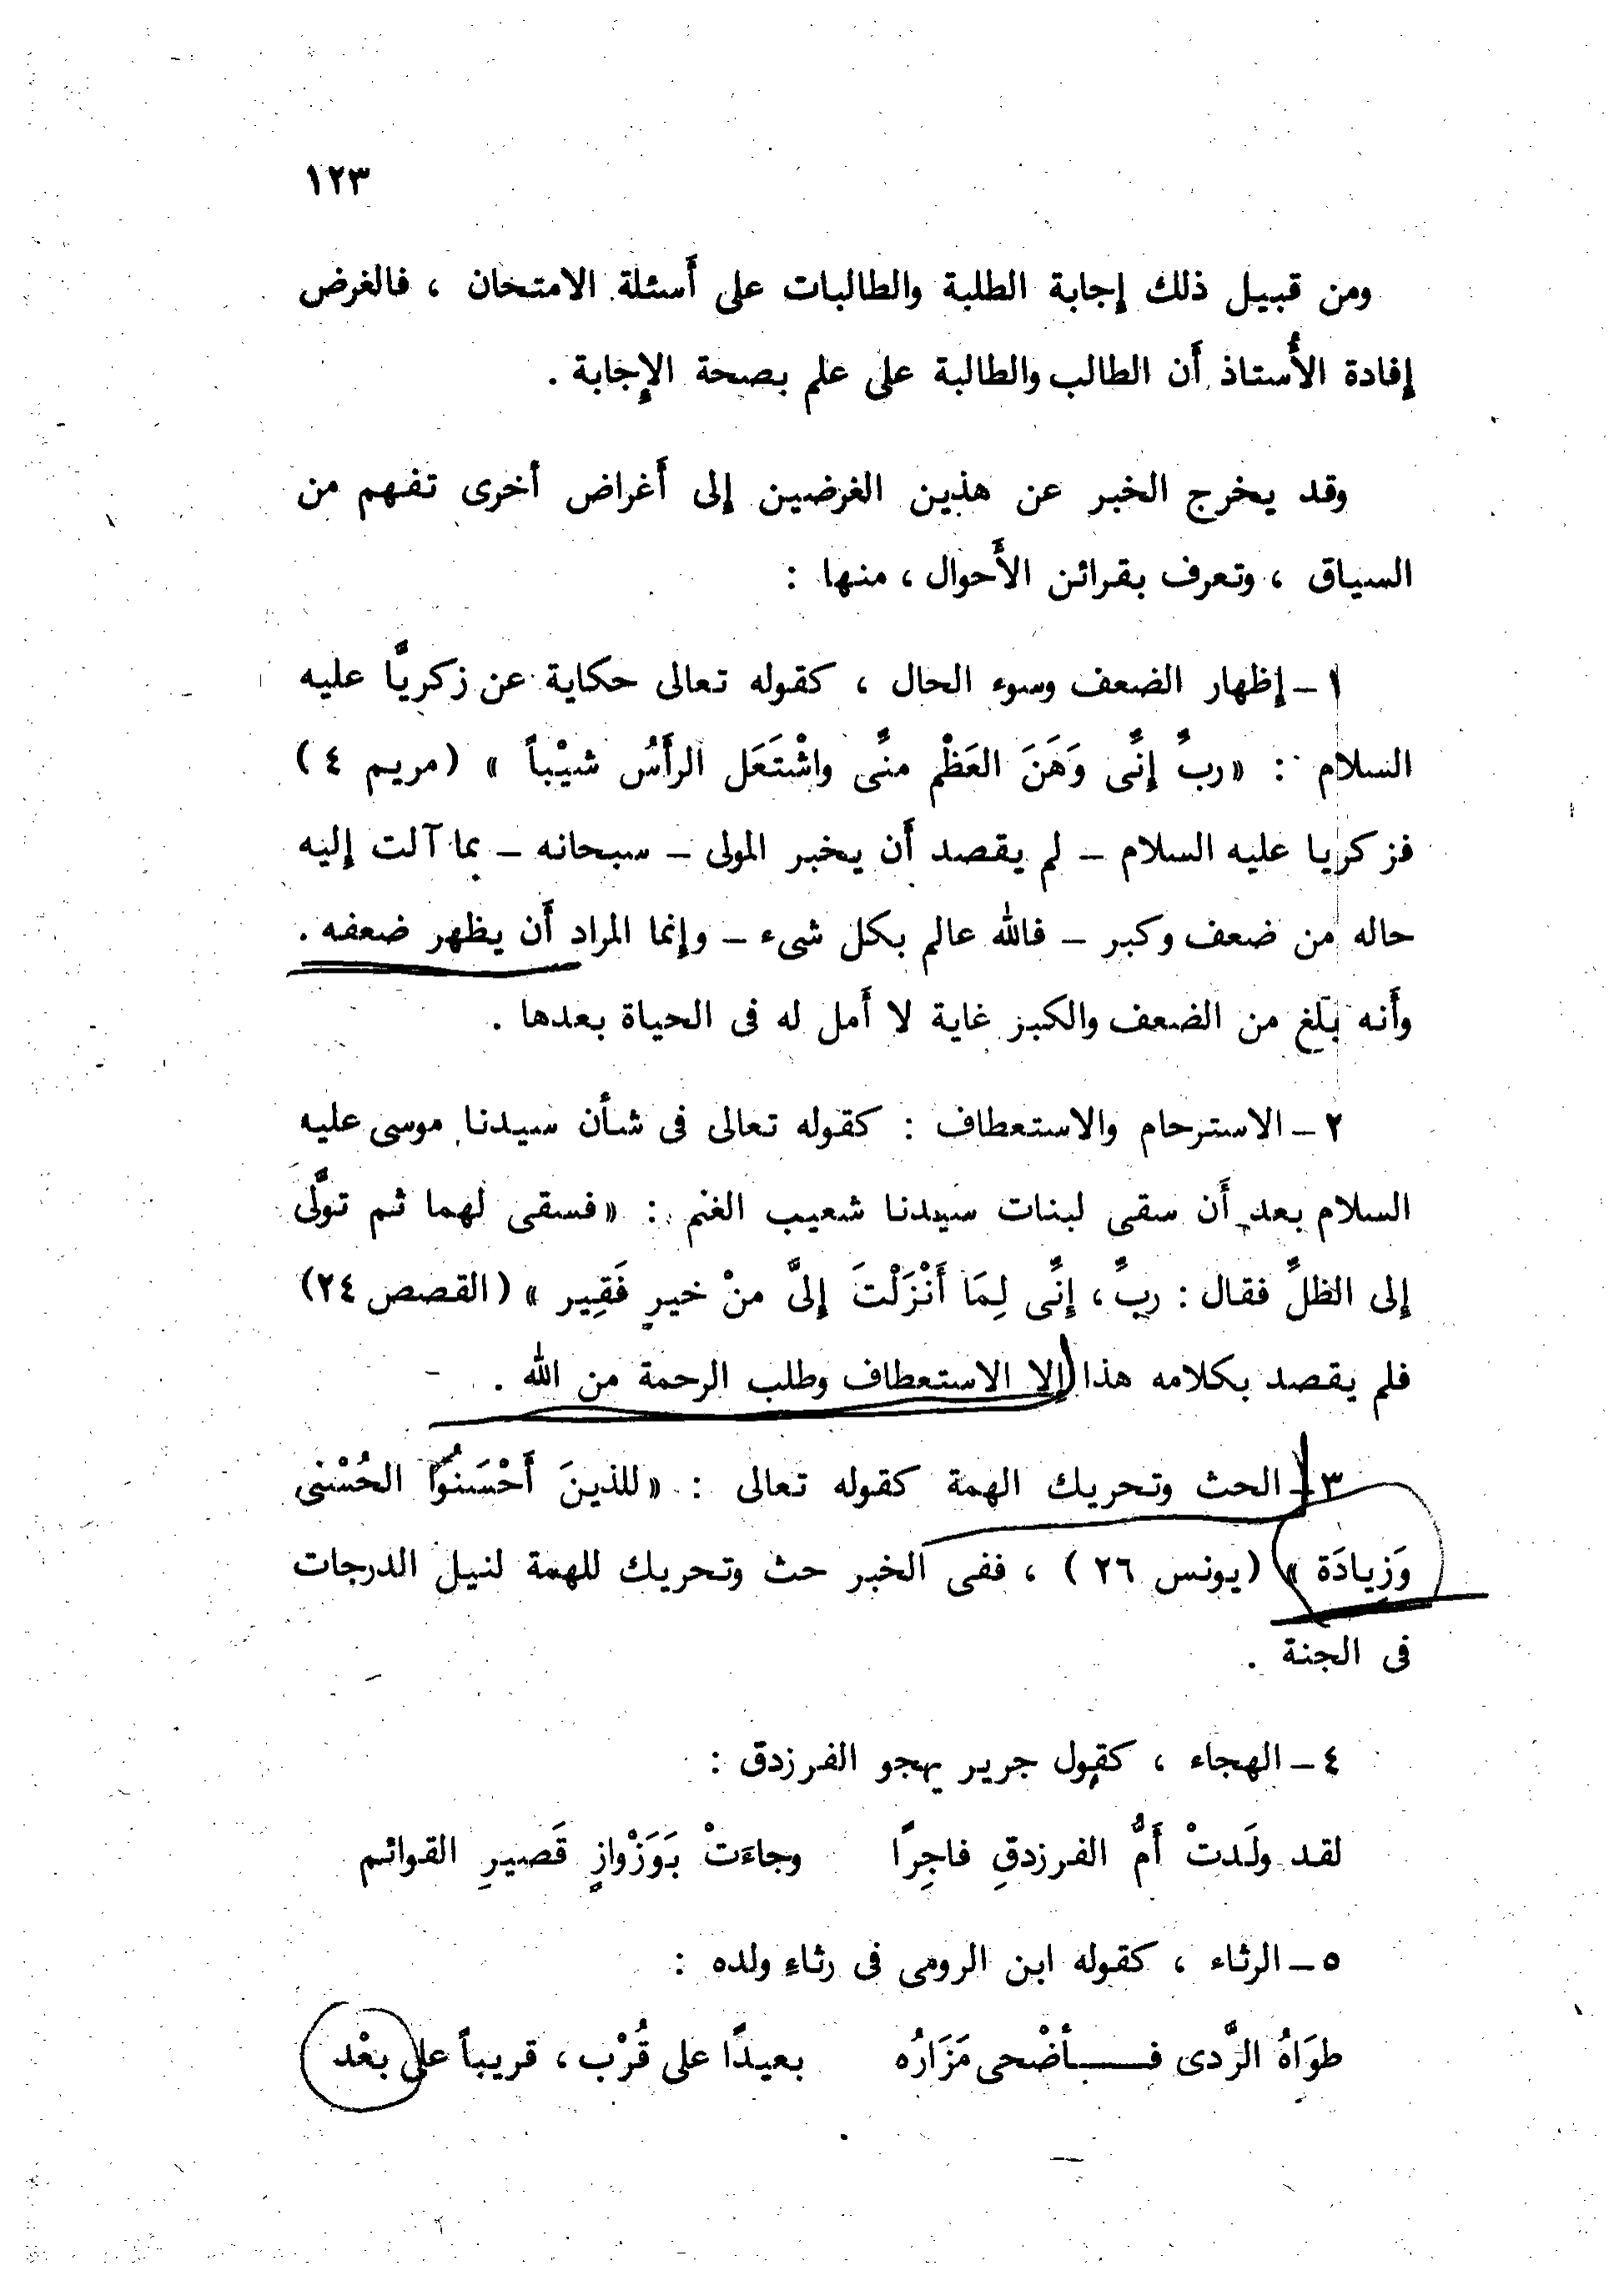 ١٢٣
ومن قبيل ذلك إجابة الطلبة والطالبات على أسئلة الامتحان ، فالغرض
إفادة الأُستاذ أن الطالب والطالبة على علم بصحة الإجابة .
وقد يخرج الخبر عن هذين الغرضين إلى أغراض أخرى تفهم من
السياق ، وتعرف بقرائن الأحوال ، منها :
١ – إظهار الضعف وسوء الحال ، كقوله تعالى حكاية عن زكريَّا عليه
السلام : « ربِّ إنِّى وَهَنَ العَظْم منِّى واشْتَعَل الرأسُ شيْباً » (مريم ٤)
فزكريا عليه السلام – لم يقصد أن يخبر المولى – سبحانه – بما آلت إليه
حاله من ضعف وكبر – فالله عالم بكل شىء – وإنما المراد أن يظهر ضعفه .
وأنه بلغ من الضعف والكبر غاية لا أمل له فى الحياة بعدها .
٢ – الاسترحام والاستعطاف : كقوله تعالى فى شأن سيدنا موسى عليه
السلام بعد أن سقى لبنات سيدنا شعيب الغنم : « فسقى لهما ثم تولَّى
إلى الظلِّ فقال : ربِّ ، إنِّى لِمَا أَنْزَلْتَ إلىَّ منْ خيرٍ فَقِير » (القصص ٢٤)
فلم يقصد بكلامه هذا إلا الاستعطاف وطلب الرحمة من الله .
٣ – الحث وتحريك الهمة كقوله تعالى : « للذينَ أَحْسَنُوا الحُسْنى
وَزِيادَة » (يونس ٢٦) ، ففى الخبر حث وتحريك للهمة لنيل الدرجات
فى الجنة .
٤ – الهجاء ، كقول جرير يهجو الفرزدق :
لقد ولَدتْ أمُّ الفرزدقِ فاجِرًا وجاءَتْ بَوَزْوازٍ قَصيرِ القوائم
٥ – الرثاء ، كقوله ابن الرومى فى رثاءِ ولده :
طوَاهُ الرَّدى فـأضْحى مَزَارُه بعيدًا على قُرْب ، قريباً على بعْد